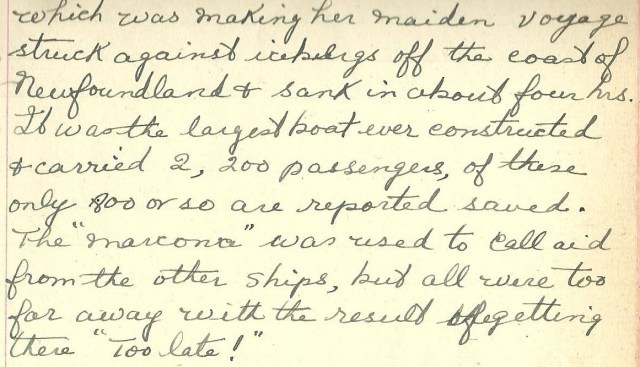 which was making her maiden voyage
struck against icebergs off the coast of
Newfoundland & sank in about four hrs.
It was the largest boat ever constructed
& carried 2,200 passengers, of these
only 800 or so are reported saved.
The "Marconi" was used to call aid
from the other ships, but all were too
far away with the result getting
there "Too late!"